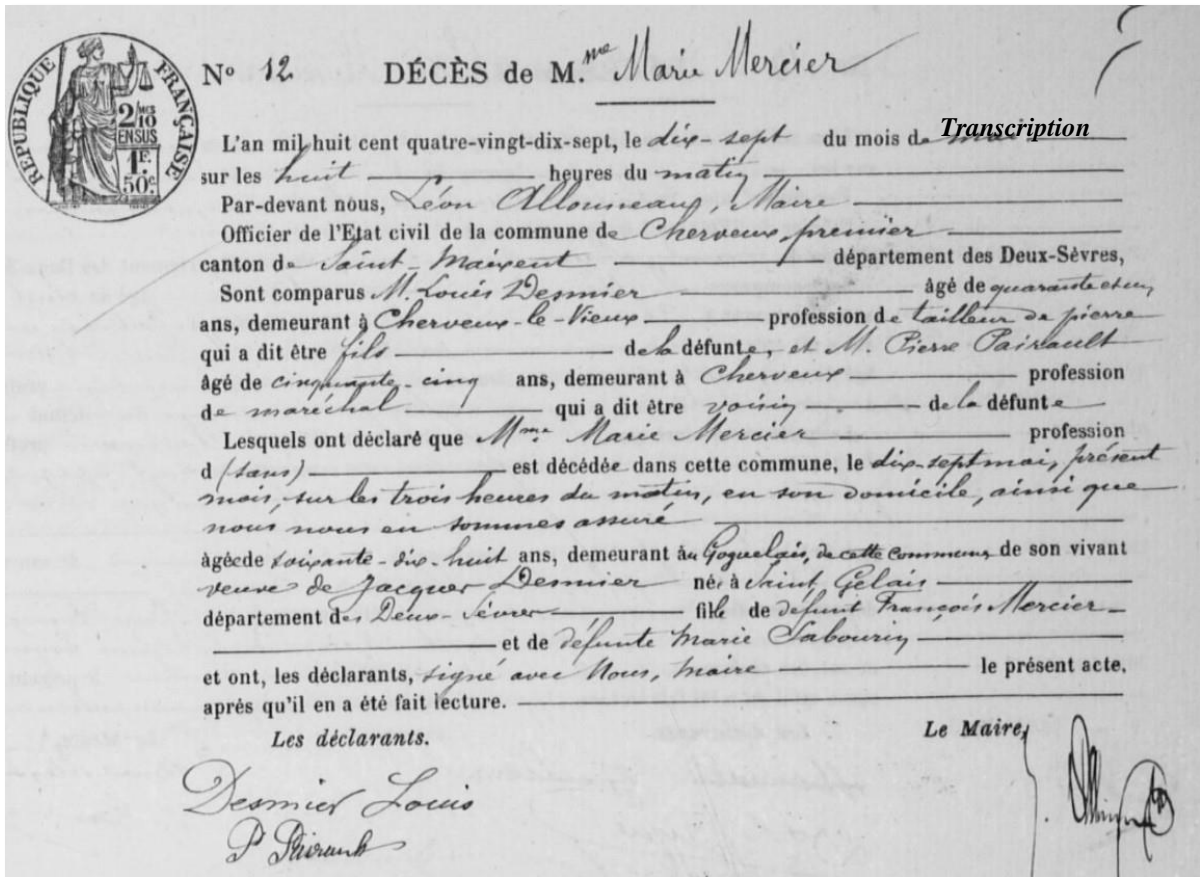 RÉPUBLIQUE FRANÇAISE
2/10 MES
EN SUS
1F.
50c.
N° 12 DÉCÈS de M.me Marie Mercier
Transcription
L'an mil huit cent quatre-vingt-dix-sept, le dix-sept du mois de mai
sur les huit heures du matin
Par-devant nous, Léon Allonneau, Maire
Officier de l'Etat civil de la commune de Cherveux, premier
canton de Saint-Maixent département des Deux-Sèvres,
Sont comparus M. Louis Desmier âgé de quarante et un
ans, demeurant à Cherveux-le-Vieux profession de tailleur de pierre
qui a dit être fils de la défunte, et M. Pierre Pairault
âgé de cinquante-cinq ans, demeurant à Cherveux profession
de maréchal qui a dit être voisin de la défunte
Lesquels ont déclaré que Mme Marie Mercier profession
d (sans) est décédée dans cette commune, le dix-sept mai, présent
mois, sur les trois heures du matin, en son domicile, ainsi que
nous nous en sommes assuré
âgée de soixante-dix-huit ans, demeurant au Goguelais, de cette commune, de son vivant
veuve de Jacques Desmier née à Saint Gelais
département des Deux-Sèvres fille de défunt François Mercier
et de défunte Marie Sabourin
et ont, les déclarants, signé avec Nous, maire le présent acte,
après qu'il en a été fait lecture.
Les déclarants. Le Maire,
Desmier Louis
P Pairault